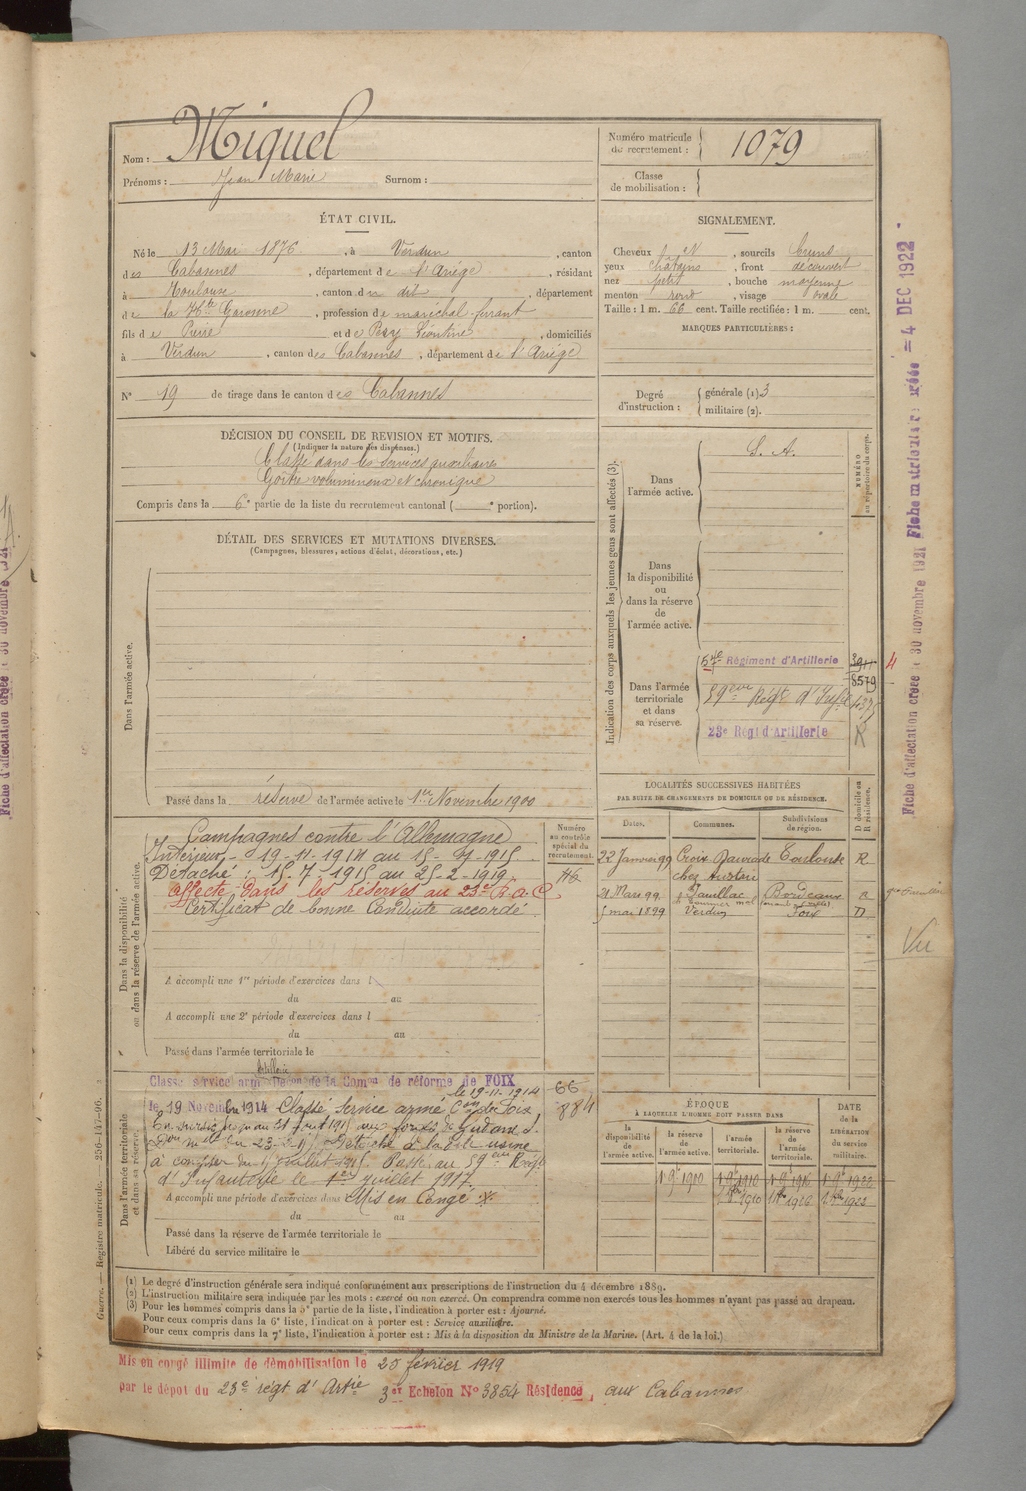 Nom : Miquel
Prénoms : Jean Marie Surnom :
Numéro matricule de recrutement : 1079
Classe de mobilisation :
ÉTAT CIVIL.
Né le 13 Mai 1876, à Verdun, canton
des Cabannes, département de l'Ariége, résidant
à Toulouse, canton du dit, département
de la Hte Garonne, profession de maréchal-ferrant
fils de Pierre et de Léontine, domiciliés
à Verdun, canton des Cabannes, département de l'Ariége
N° 19 de tirage dans le canton des Cabannes
SIGNALEMENT.
Cheveux et N, sourcils bruns
yeux châtains, front découvert
nez petit, bouche moyenne
menton rond, visage ovale
Taille : 1 m. 66 cent. Taille rectifiée : 1 m. cent.
MARQUES PARTICULIÈRES :
Degré d'instruction : générale (1) 3
militaire (2).
DÉCISION DU CONSEIL DE REVISION ET MOTIFS.
(Indiquer la nature des dispenses.)
Classé dans les services auxiliaires
Goître volumineux et chronique
Compris dans la 6e partie de la liste du recrutement cantonal ( e portion).
DÉTAIL DES SERVICES ET MUTATIONS DIVERSES.
(Campagnes, blessures, actions d'éclat, décorations, etc.)
Dans l'armée active.
Passé dans la réserve de l'armée active le 1er Novembre 1900
Indication des corps auxquels les jeunes gens sont affectés (3).
NUMÉRO au répertoire du corps.
Dans l'armée active.
S. A.
Dans la disponibilité ou dans la réserve de l'armée active.
Dans l'armée territoriale et dans sa réserve.
57e Régiment d'Artillerie
8579
59eme Régt d'Infie
23e Régt d'Artillerie R
4
Dans la disponibilité ou dans la réserve de l'armée active.
Campagnes contre l'Allemagne
Intérieur - 19-11-1914 au 15-7-1915
Détaché : 15-7-1915 au 25-2-1919
Affecté dans les réserves au 23e R.A.C
Certificat de bonne Conduite accordé
A accompli une 1re période d'exercices dans l
du au
A accompli une 2e période d'exercices dans l
du au
Passé dans l'armée territoriale le
Numéro au contrôle spécial du recrutement.
116
LOCALITÉS SUCCESSIVES HABITÉES
PAR SUITE DE CHANGEMENTS DE DOMICILE OU DE RÉSIDENCE.
D domicile ou R résidence.
Dates. Communes. Subdivisions de région.
22 Janvier 99 Croix Daurade Toulouse R
chez
21 Mars 99 Pauillac Bordeaux R
5 mai 1899 Verdun Foix D
Vu
Dans l'armée territoriale et dans sa réserve.
Artillerie
Classé service armé Décon de la Comon de réforme de FOIX
le 19-11-1914
66
884
le 19 Novembre 1914 Classé Service armé Con de Foix
A accompli une période d'exercices dans Mis en Congé
du au
à compter du 15 juillet 1915. Passé au 59eme Régt
d'Infanterie le 1er juillet 1917.
Passé dans la réserve de l'armée territoriale le
Libéré du service militaire le
ÉPOQUE
À LAQUELLE L'HOMME DOIT PASSER DANS
DATE de la LIBÉRATION du service militaire.
la disponibilité de l'armée active. la réserve de l'armée active. l'armée territoriale. la réserve de l'armée territoriale.
(1) Le degré d'instruction générale sera indiqué conformément aux prescriptions de l'instruction du 4 décembre 1889.
(2) L'instruction militaire sera indiquée par les mots : exercé ou non exercé. On comprendra comme non exercés tous les hommes n'ayant pas passé au drapeau.
(3) Pour les hommes compris dans la 5e partie de la liste, l'indication à porter est : Ajourné.
Pour ceux compris dans la 6e liste, l'indication à porter est : Service auxiliaire.
Pour ceux compris dans la 7e liste, l'indication à porter est : Mis à la disposition du Ministre de la Marine. (Art. 4 de la loi.)
Mis en congé illimité de démobilisation le 25 février 1919
par le dépot du 23e régt d'Artie 3er Echelon N° 3854 Résidence, aux Cabannes
Guerre. — Registre matricule. — 256-147-96.
Fiche d'affectation créée le 30 novembre 1921 Fiche matriculaire créée = 4 DEC 1922